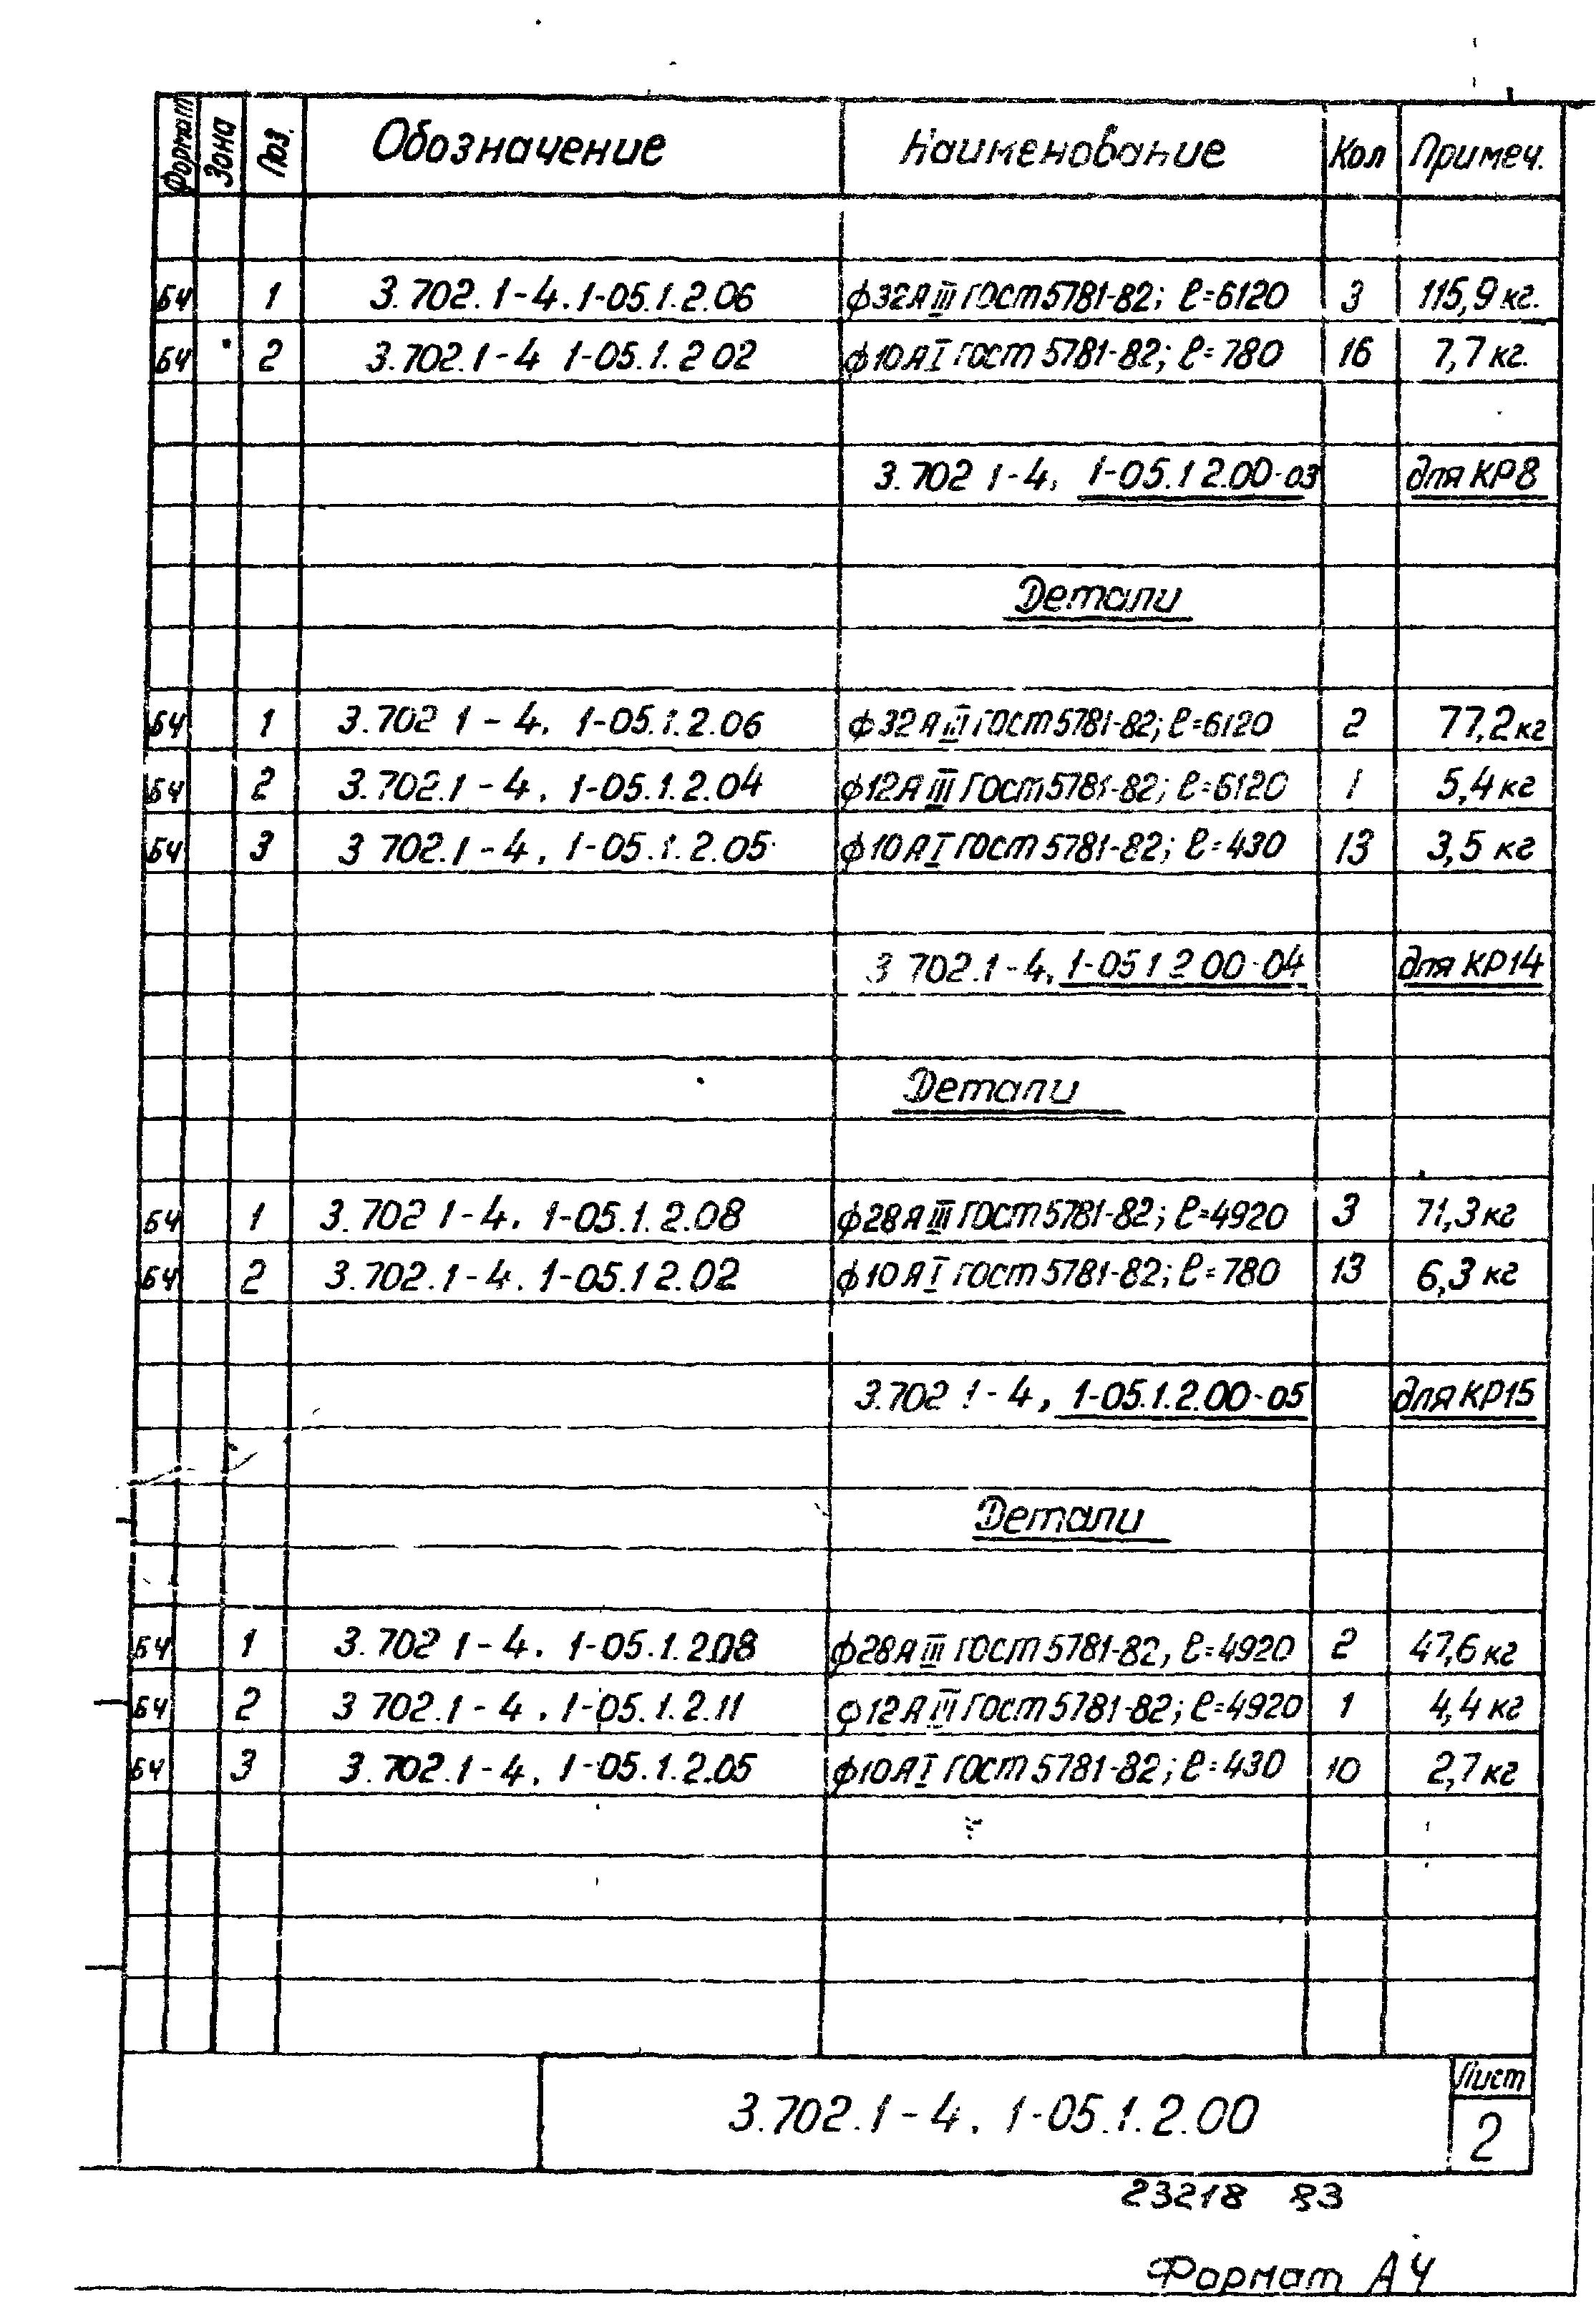 Формат Зона Поз. Обозначение Наименование Кол Примеч.
БЧ 1 3.702.1-4.1-05.1.2.06 ф32АIII ГОСТ 5781-82; ℓ=6120 3 115,9 кг.
БЧ 2 3.702.1-4 1-05.1.2 02 ф10АI ГОСТ 5781-82; ℓ=780 16 7,7 кг.
3.702 1-4, 1-05.1 2.00-03 для КР8
Детали
БЧ 1 3.702 1-4. 1-05.1.2.06 ф32АIII ГОСТ 5781-82; ℓ=6120 2 77,2 кг
БЧ 2 3.702.1-4. 1-05.1.2.04 ф12АIII ГОСТ 5781-82; ℓ=6120 1 5,4 кг
БЧ 3 3 702.1-4. 1-05.1.2.05 ф10АI ГОСТ 5781-82; ℓ=430 13 3,5 кг
3 702.1-4, 1-05 1 2 00-04 для КР14
Детали
БЧ 1 3.702 1-4. 1-05.1.2.08 ф28АIII ГОСТ 5781-82; ℓ=4920 3 71,3 кг
БЧ 2 3.702.1-4. 1-05.1 2.02 ф10АI ГОСТ 5781-82; ℓ=780 13 6,3 кг
3.702 1-4, 1-05.1.2.00-05 для КР15
Детали
БЧ 1 3.702 1-4. 1-05.1.2.08 ф28АIII ГОСТ 5781-82, ℓ=4920 2 47,6 кг
БЧ 2 3 702.1-4. 1-05.1.2.11 ф12АIII ГОСТ 5781-82; ℓ=4920 1 4,4 кг
БЧ 3 3.702.1-4. 1-05.1.2.05 ф10АI ГОСТ 5781-82; ℓ=430 10 2,7 кг
3.702.1-4. 1-05.1.2.00
Лист
2
23218 83
Формат А4